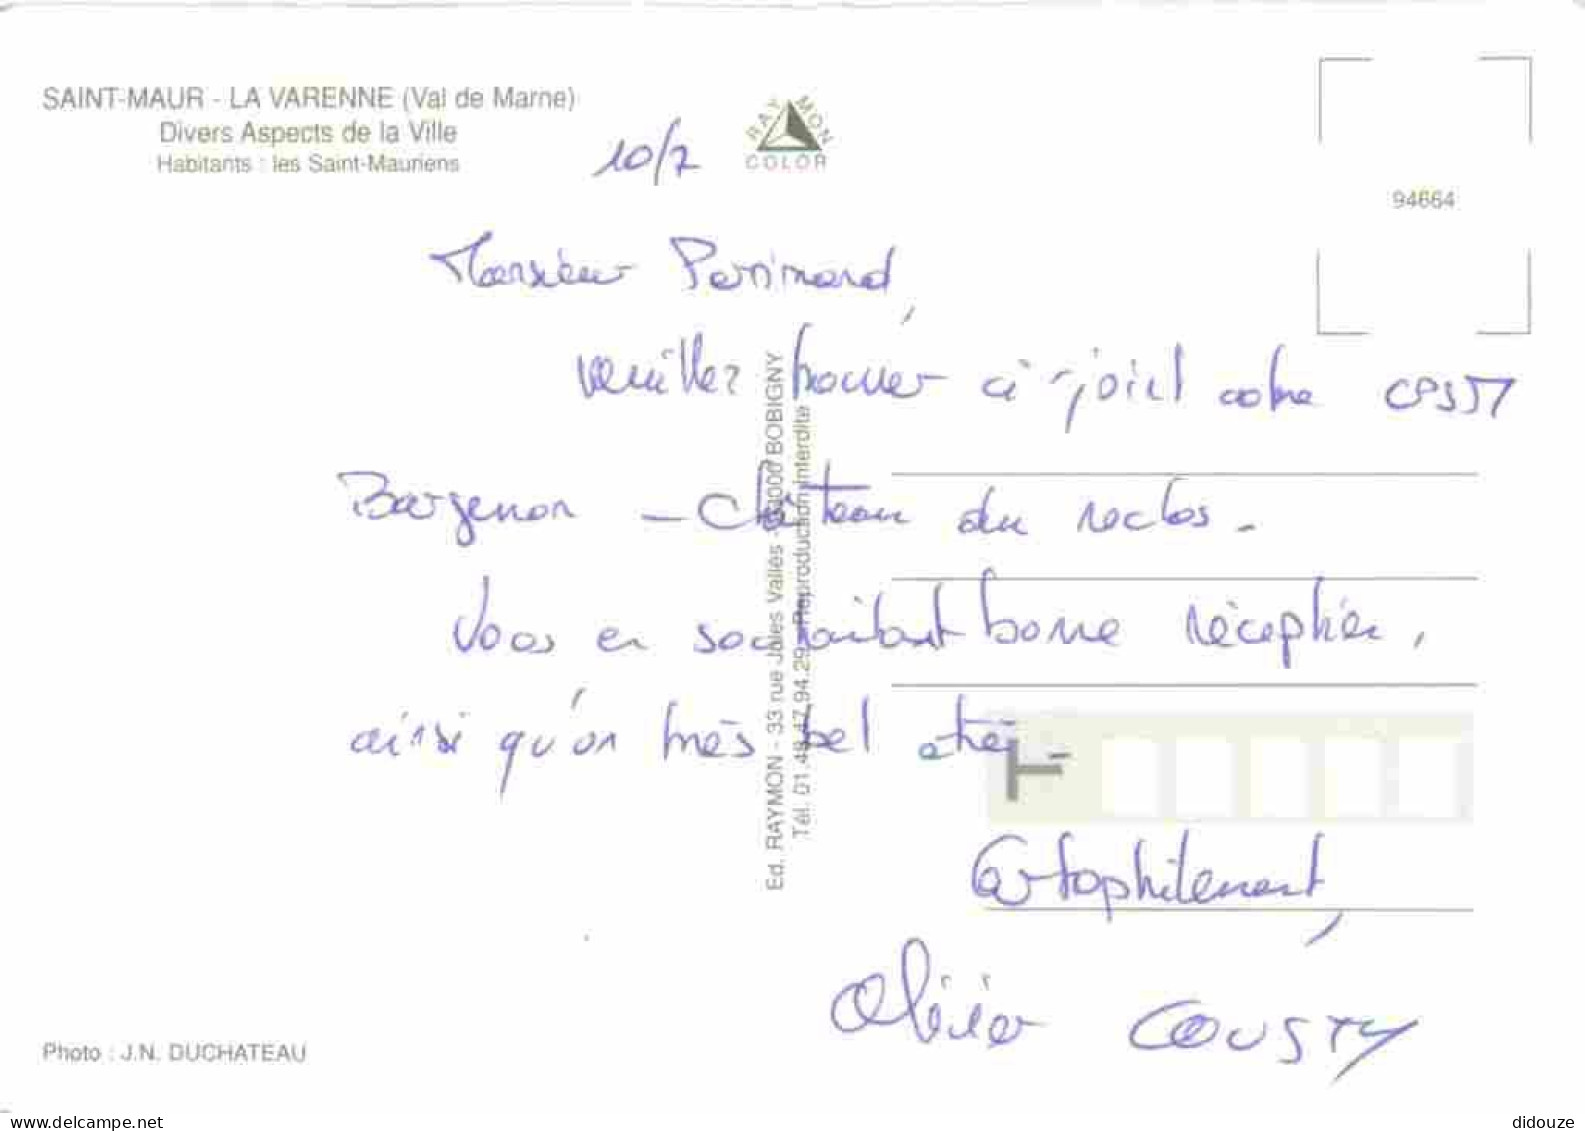 SAINT-MAUR - LA VARENNE (Val de Marne)
Divers Aspects de la Ville
Habitants : les Saint-Mauriens
10/7
RAYMON COLOR
94664
Monsieur
veuillez trouver ci-joint votre CPSM
Barzenon - Château du reclos.
Vous en souhaitant bonne réception,
ainsi qu'un très bel été.
Cartophilement,
Olivier COUSTY
Ed. RAYMON - 33 rue Jules Vallès - 93000 BOBIGNY
Tél. 01.48.47.94.29 - Reproduction interdite
Photo : J.N. DUCHATEAU
www.delcampe.net
didouze